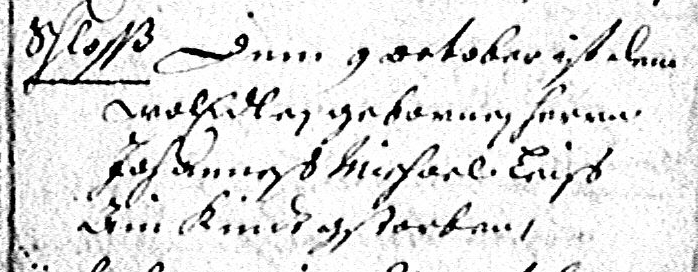 Schloss Denn 9 october ist dem
wohl Edlen gebornen herrn
Johanness Michael Leiss
Ein Kindt gestorben